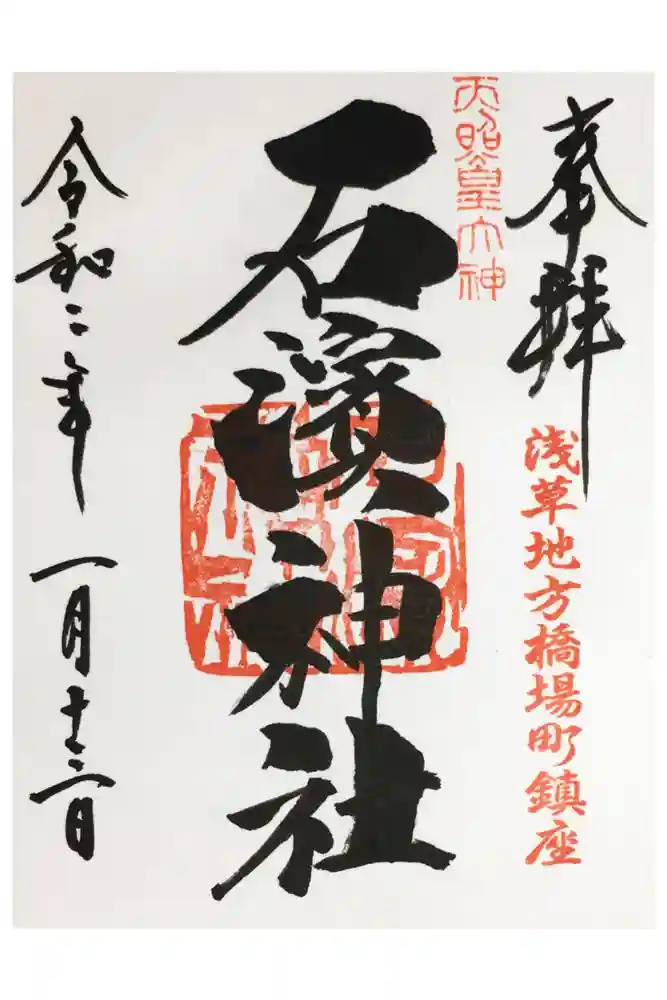 奉拝
浅草地方橋場町鎮座
天照皇大神
石濱神社
令和二年
一月十二日